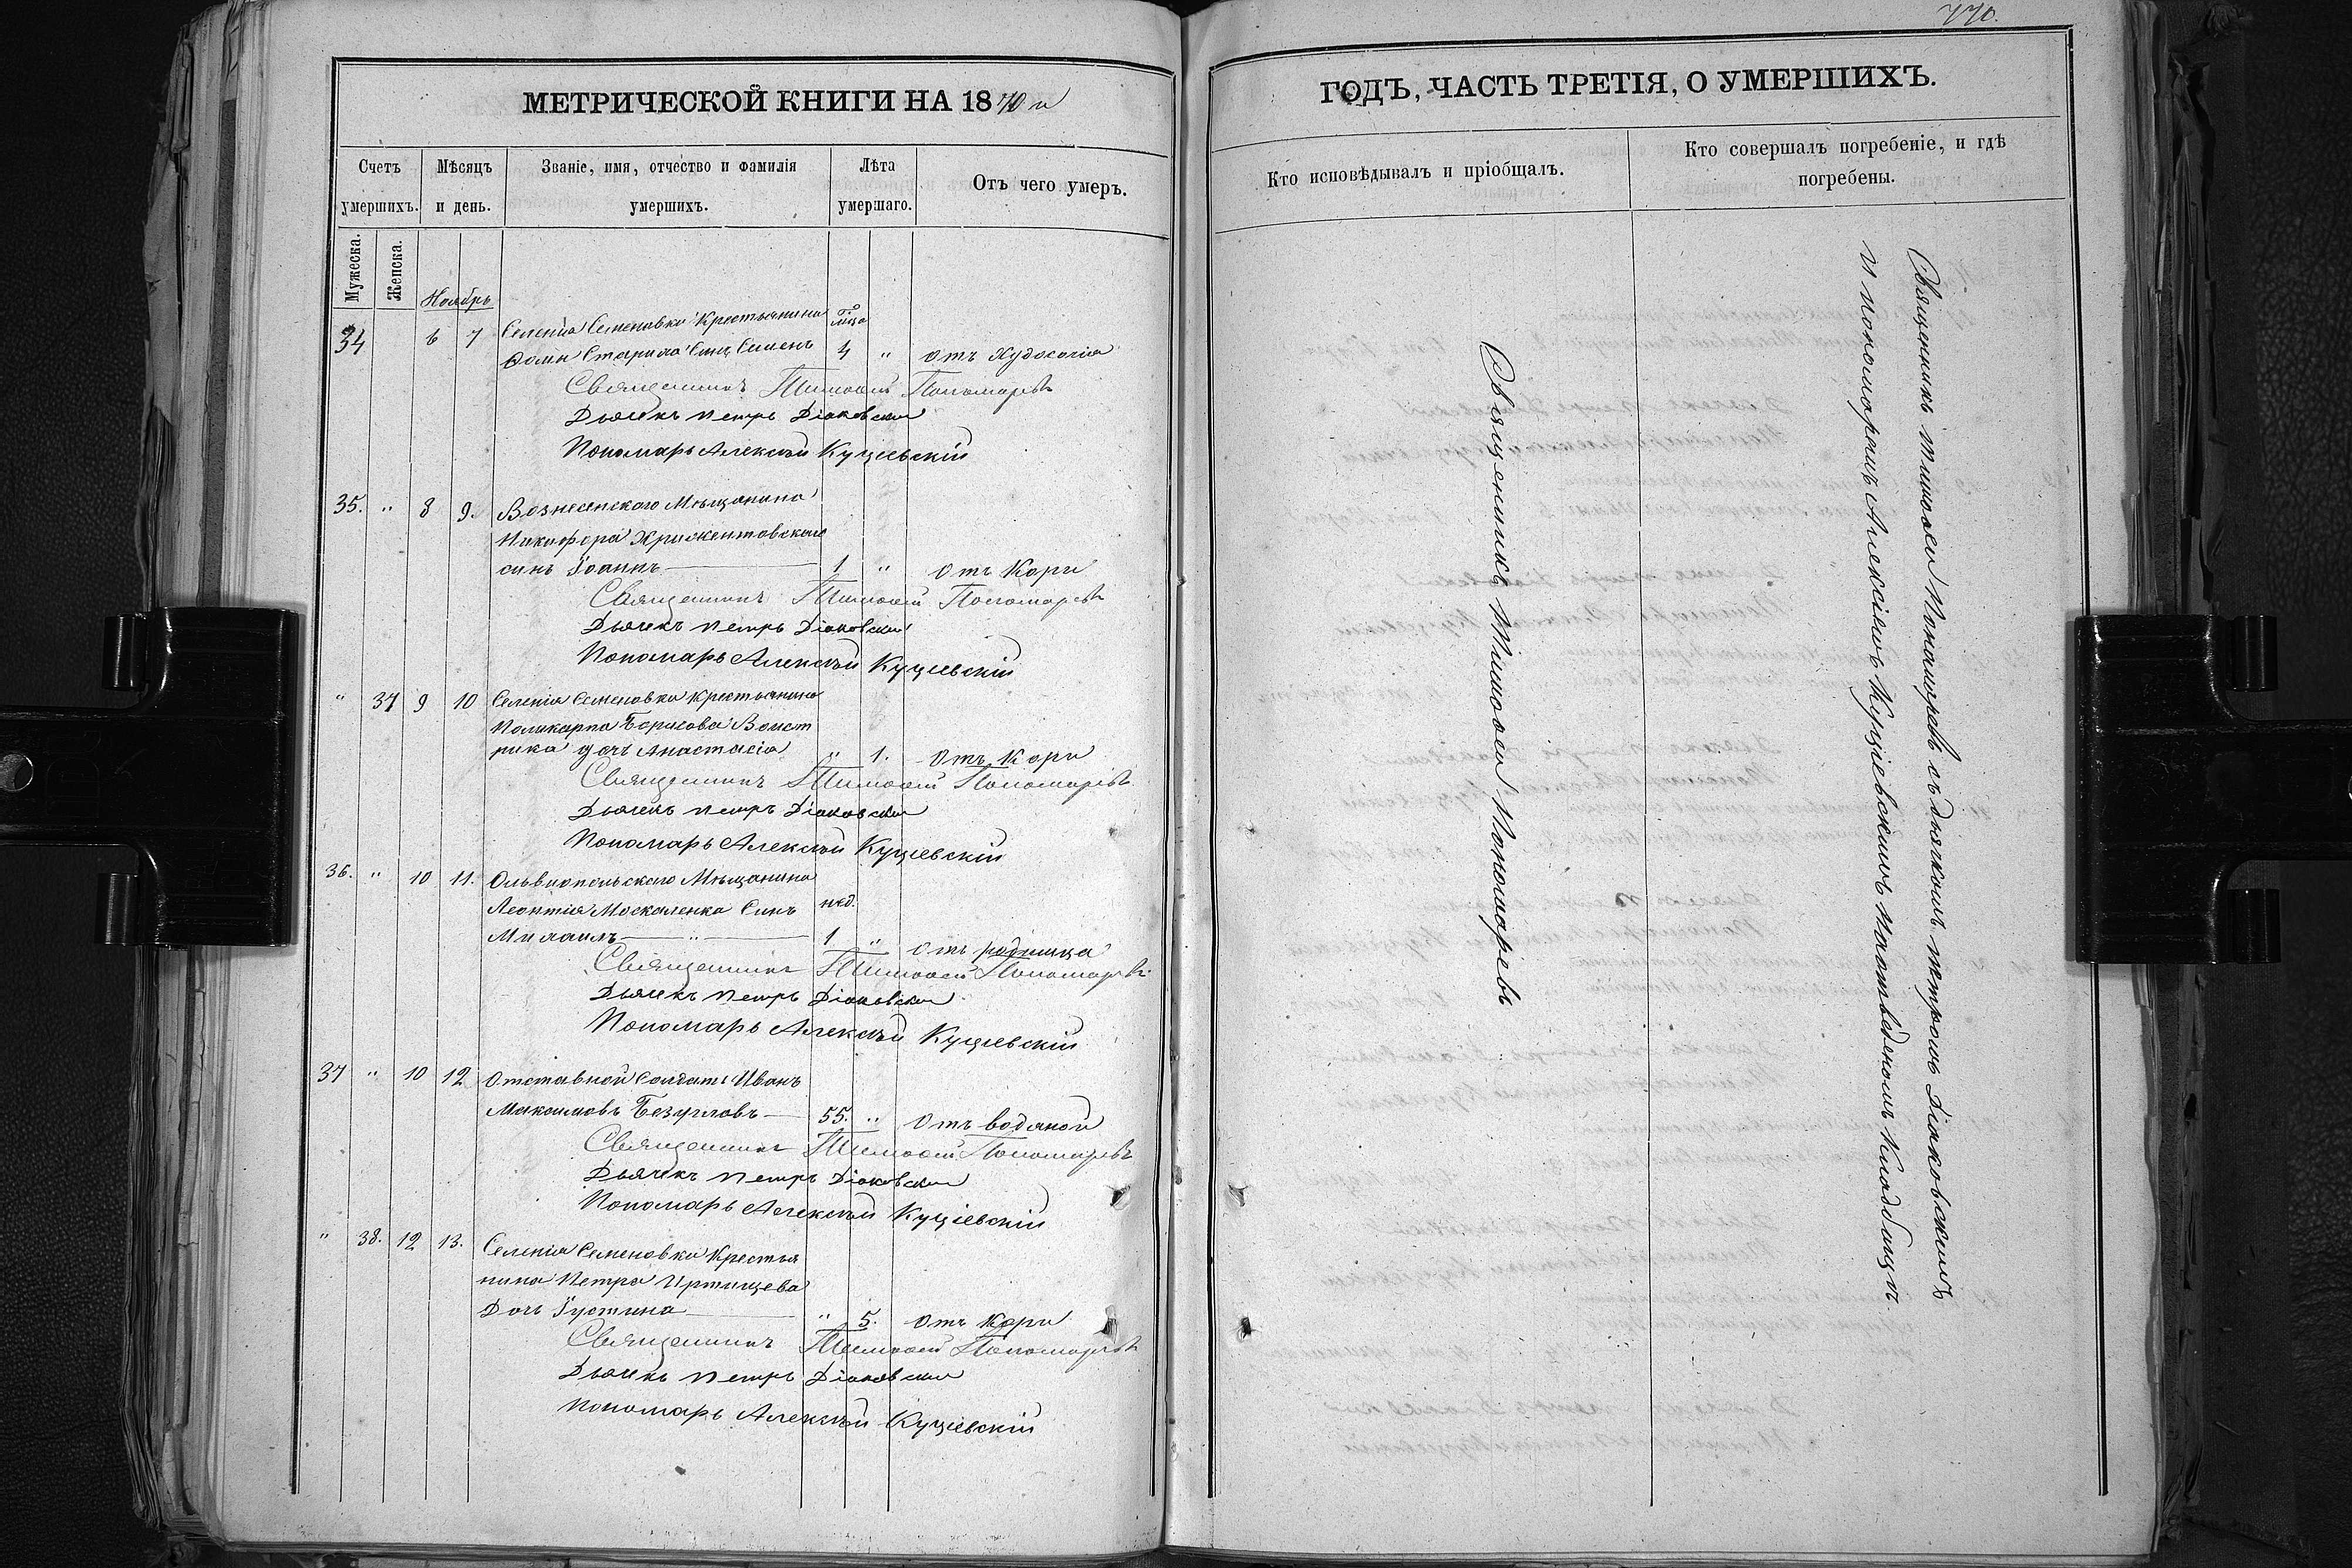 770.
МЕТРИЧЕСКОЙ КНИГИ НА 1870й
Счетъ умершихъ.
Мѣсяцъ и день.
Званіе, имя, отчество и фамилія умершихъ.
Лѣта умершаго.
Отъ чего умеръ.
Мужеска.
Женска.
Ноябрь
34 6 7 Селенія Семеновки Крестьянина
Фомы Старика Сынъ Симеонъ 4 " отъ Худосочія
Священникъ Тимоѳей Пономаревъ
Дьячекъ Петръ Діаковскій
Пономарь Алексѣй Куцѣевскій
35. " 8 9. Вознесенскаго Мѣщанина
Никифора
сынъ Іоаннъ 1 " отъ Кори
Священникъ Тимоѳей Пономаревъ
Дьячекъ Петръ Діаковскій
Пономарь Алексѣй Куцѣевскій
" 37 9 10 Селенія Семеновки Крестьянина
Поликарпа Борисова
дочь Анастасія " 1. Отъ Кори
Священникъ Тимоѳей Пономаревъ
Дьячекъ Петръ Діаковскій
Пономарь Алексѣй Куцѣевскій
36. " 10 11. Ольвиопольскаго Мѣщанина
Леонтія Москаленка Сынъ нед.
Михаилъ " 1 " отъ родимца
Священникъ Тимоѳей Пономаревъ
Дьячекъ Петръ Діаковскій
Пономарь Алексѣй Куцѣевскій
37 " 10 12 Отставной Солдатъ Иванъ
Максимовъ Безугловъ 55. " Отъ водяной
Священникъ Тимоѳей Пономаревъ
Дьячекъ Петръ Діаковскій
Пономарь Алексѣй Куціевскій
" 38. 12 13. Селенія Семеновки Крестья
нина Петра Иртищева
Дочь Іустина " 5. отъ Кори
Священникъ Тимоѳей Пономаревъ
Дьячекъ Петръ Діаковскій
Пономарь Алексѣй Куціевскій
ГОДЪ, ЧАСТЬ ТРЕТІЯ, О УМЕРШИХЪ.
Кто исповѣдывалъ и пріобщалъ.
Кто совершалъ погребеніе, и гдѣ погребены.
Священникъ Тимоѳей Пономаревъ
Священникъ Тимоѳей Пономаревъ съ дьячкомъ Петромъ Діаковскимъ
и пономаремъ Алексіемъ Куціевскимъ на отведеномъ Кладбищѣ